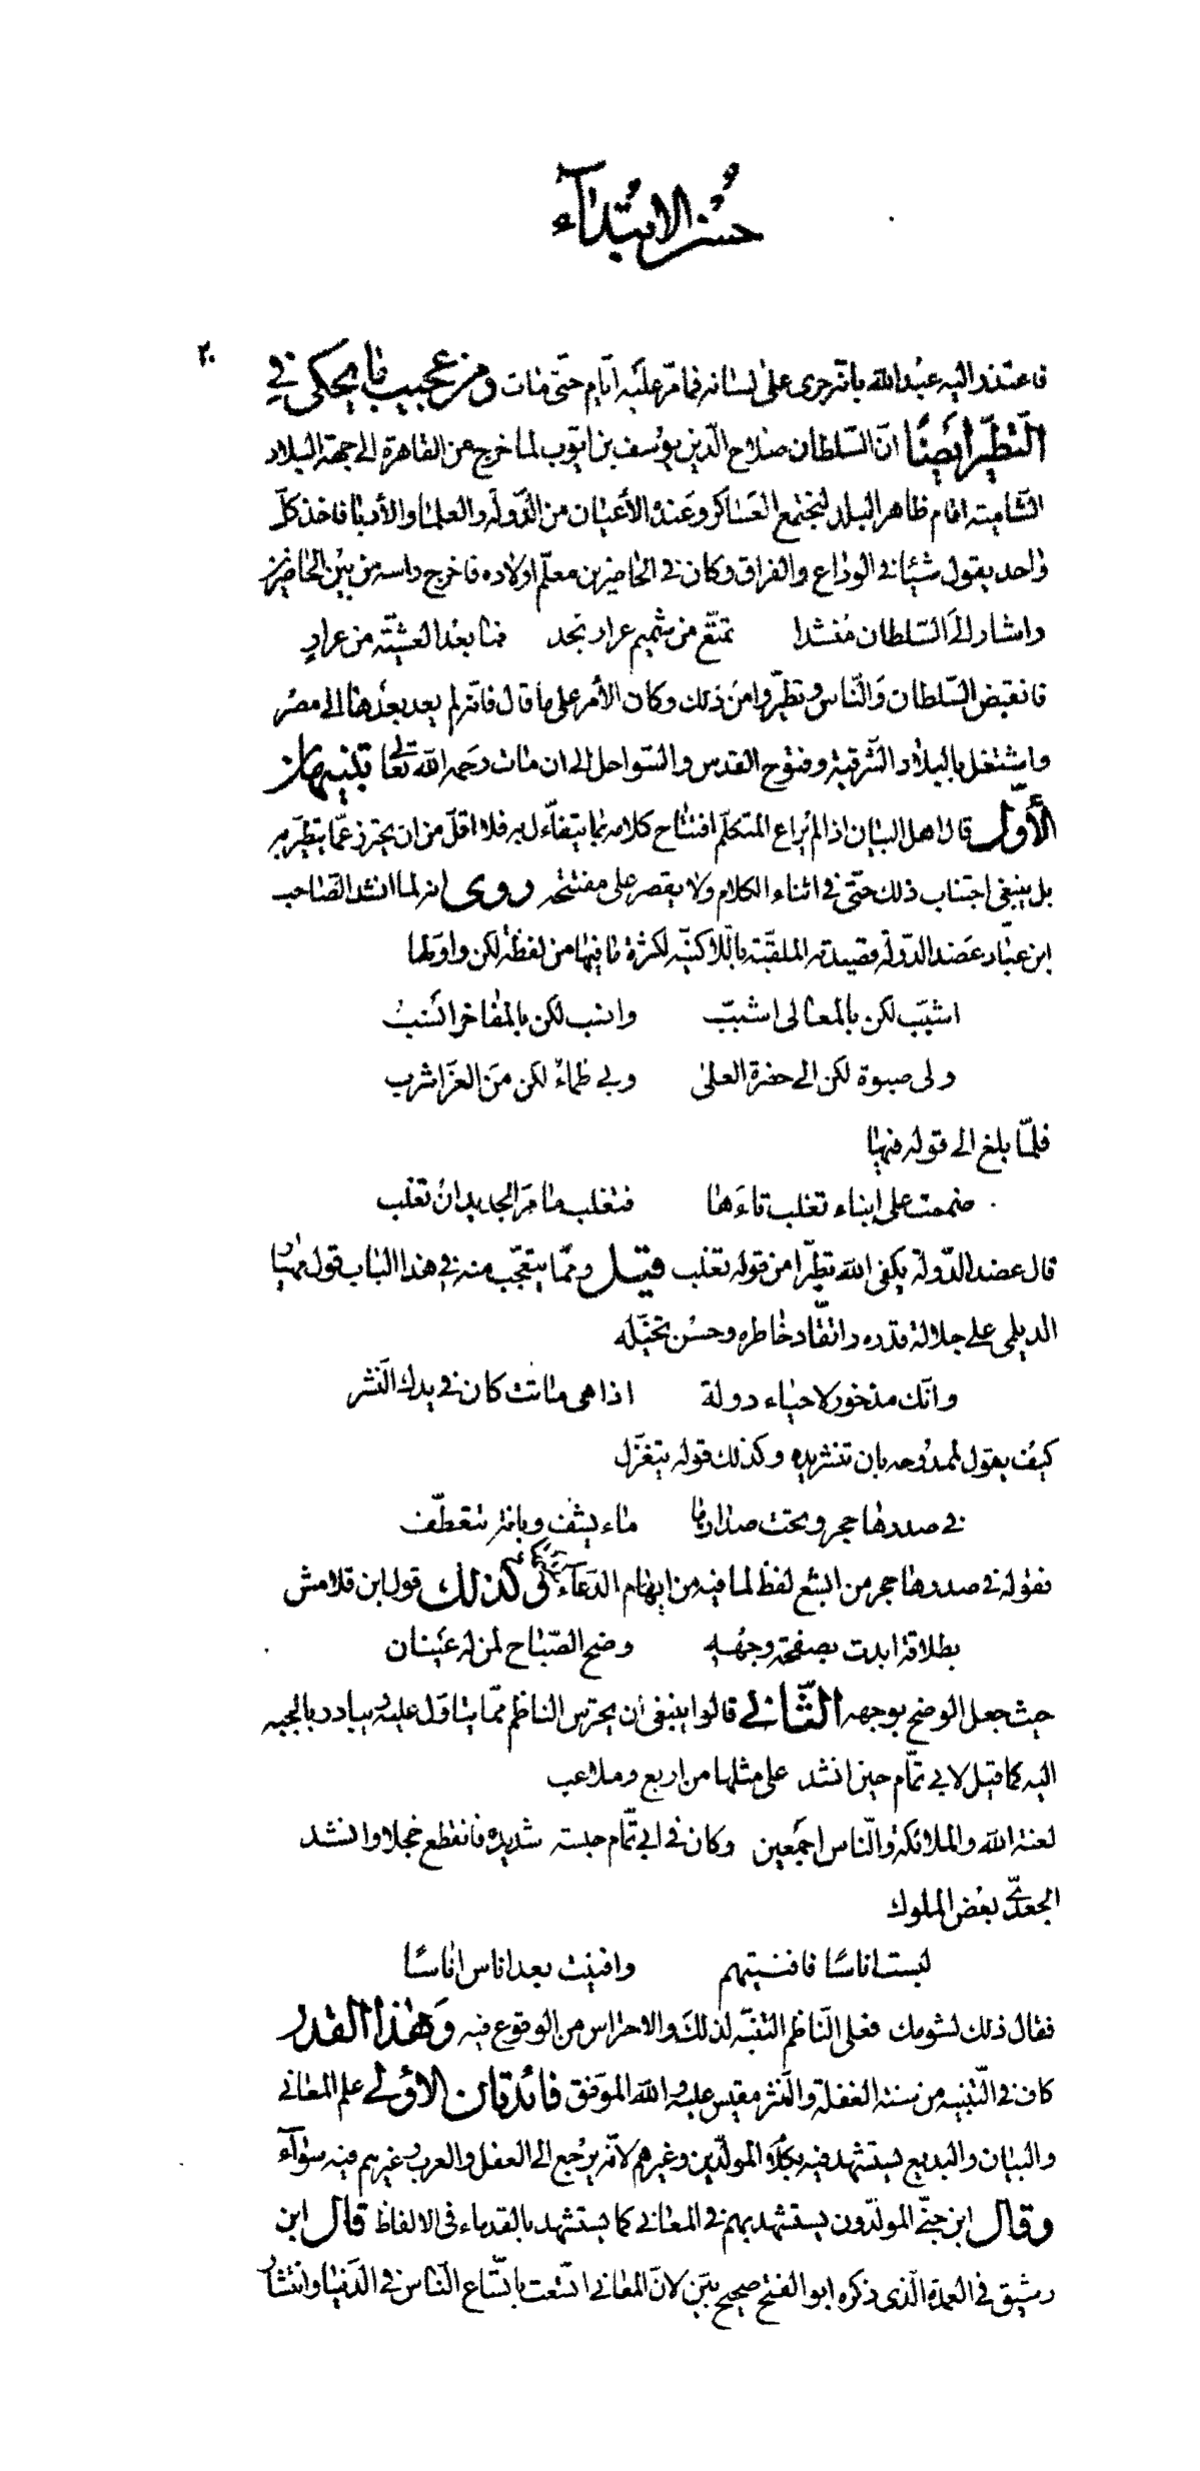 حُسْنُ الابْتِدَآء
٢٠
فاعتذر اليه عبد الله بانّه جرى على لسانه فما مرّ عليه ايّام حتّى مات ومن عجيب ما يحكى في
التّطيّر ايضًا انّ السّلطان صلاح الدّين يوسف بن ايّوب لما خرج عن القاهرة الى جهة البلاد
الشّاميّة اقام ظاهر البلد لتجتمع العساكر وعنده الأعيان من الدّولة والعلماء والأدباء فاخذ كلّ
واحد يقول شيئا في الوداع والفراق وكان في الحاضرين معلّم اولاده فاخرج راسه من بين الحاضرين
واشار الى السّلطان منشدا تمتّع من شميم عرار نجد فما بعد العشيّة من عرارٍ
فانقبض السّلطان والنّاس وتطيّروا من ذلك وكان الأمر على ما قال فانّه لم يعد بعدها الى مصر
واشتغل بالبلاد الشرقية وفتوح القدس والسّواحل الى ان مات رحمه الله تعالى تنبيهان
الأوّل قال اهل البيان اذا لم يراع المتكلّم افتتاح كلامه بما يتفاءّل به فلا اقلّ من ان يحترز عمّا يتطيّر به
بل ينبغي اجتناب ذلك حتّى في اثناء الكلام ولا يقصر على مفتتحه روى انه لما انشد الصّاحب
ابن عبّاد عضد الدّولة قصيدته الملقّبة باللاكنيّه لكثرة ما فيها من لفظة لكن واولها
اشبّب لكن بالمعالى اشبّب وانسب لكن بالمفاخر انسبُ
ولى صبوة لكن الى حضرة العلى وبي ظماءٌ لكن من العزّ اشرب
فلمّا بلغ الى قوله فيها
ضممت على ابناء تغلب تاءَها فتغلب ما مَرّ الجديدان تغلب
قال عضد الدّولة يكفي الله تطيّرا من قوله تغلب قيل وممّا يتعجّب منه في هذا الباب قول مهيار
الديلمى على جلالة قدره واتقّاد خاطره وحسن تخيّله
وانّك مذخور لاحياء دولة اذا هى ماتت كان في يدك النّشر
كيف يقول لممدوحه بان تنشر يده وكذلك قوله يتغزّل
في صدرها حجر وتحت صدارها ماء يشفّ وبانة تتعطّف
فقوله في صدرها حجر من ابشع لفظ لما فيه من ايهام الدعآء وكذلك قول ابن قلاقس
بطلاقة ابدت بصفحة وجهه وضح الصّباح لمن له عينان
حيث جعل الوضح بوجهه الثّاني قالوا ينبغي أن يحترس النّاظم ممّا يتاوّل عليه ويبادر بالجبه
اليه كما قيل لابي تمّام حين انشد على مثلها من اربع وملاعب
لعنة الله والملائكة والنّاس اجمعين وكان في ابي تمّام حبسة شديدة فانقطع خجلا وانشد
الجعديّ بعض الملوك
لبست اناسًا فافنيتهم وافنيت بعد اناس اناسًا
فقال ذلك لشومك فعلى النّاظم التنبّه لذلك والاحتراس من الوقوع فيه وهٰذا القدر
كاف في التّنبيه من سنة الغفلة والنّثر مقيس عليه والله الموفق فائدتان الاولى علم المعاني
والبيان والبديع يستشهد فيه بكلام المولّدين وغيرهم لانّه يرجع الى العقل والعرب وغيرهم فيه سوآء
وقال ابن جنّي المولّدون يستشهد بهم في المعاني كما يستشهد بالقدماء فى الالفاظ قال ابن
رشيق في العمدة الّذى ذكره ابو الفتح صحيح بيّن لانّ المعاني اتّسعت باتّساع النّاس في الدّنيا وانتشار